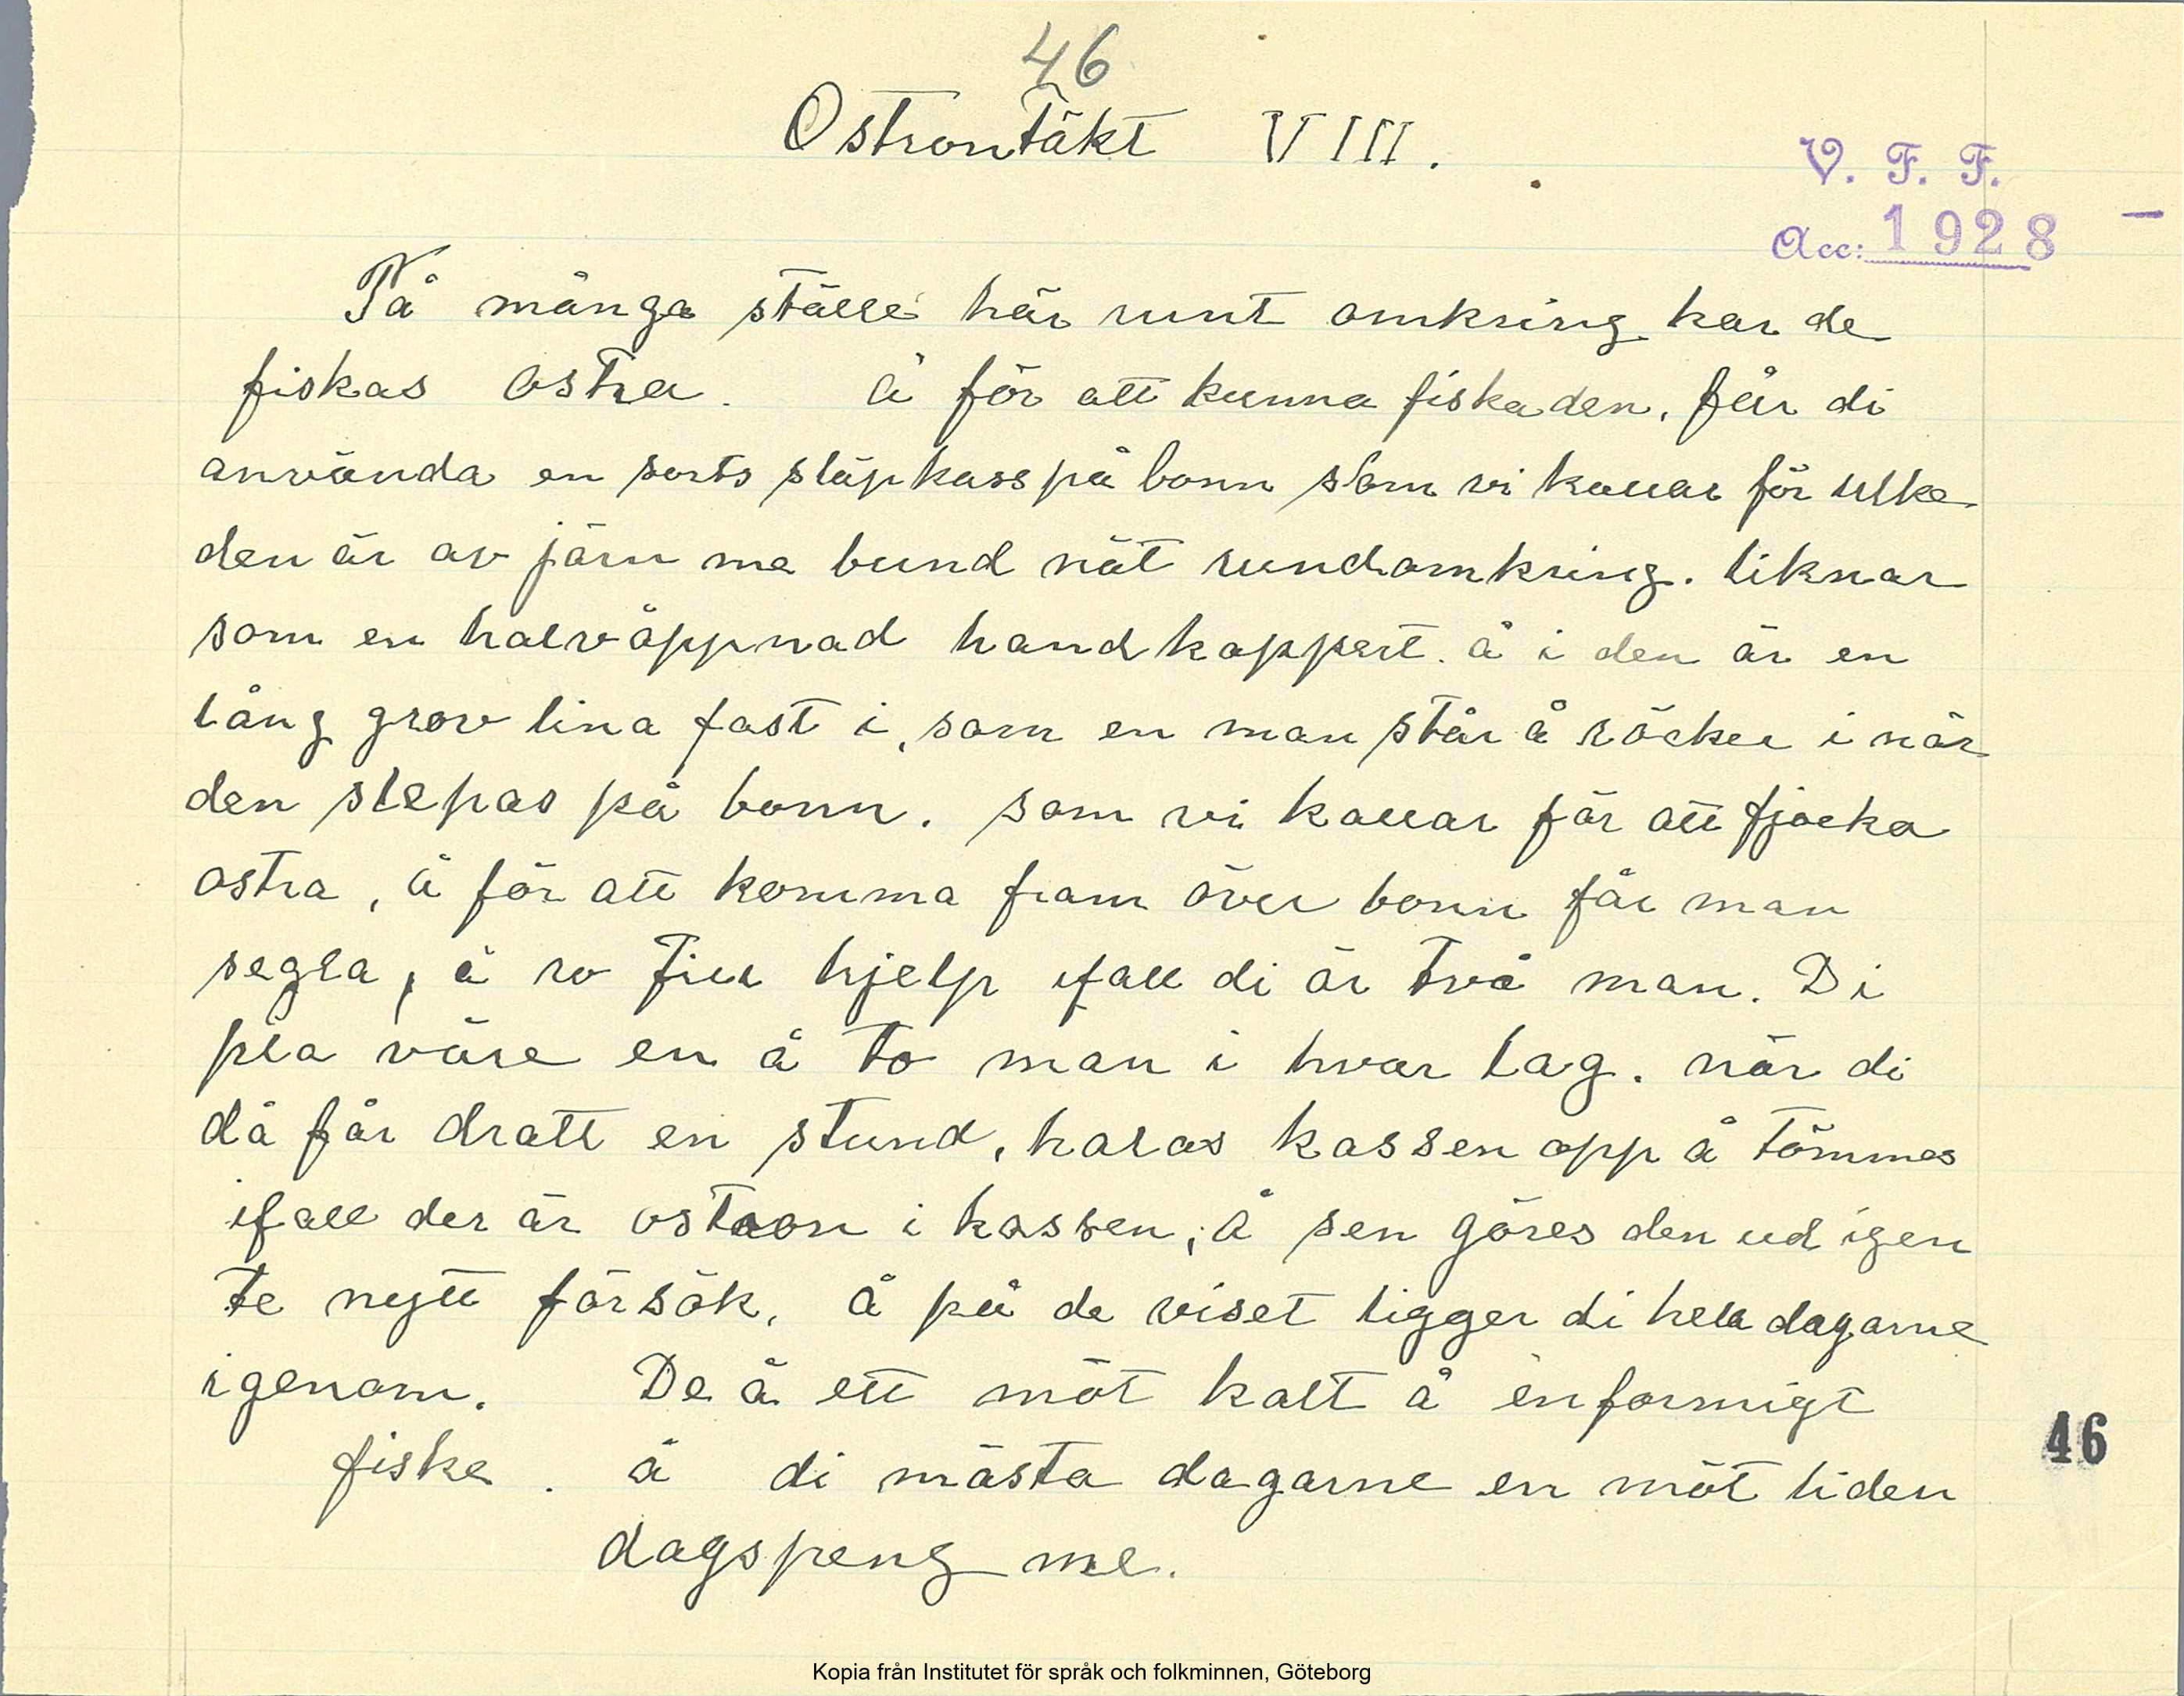 46
Ostrontäkt VIII.
V. F. F.
Acc: 1928 -
På många ställe här runt omkring kan de
fiskas ostra. å för att kunna fiska den, får di
använda en sorts släpkass på bonn som vi kallar för
den är av järn me bund nät rundomkring. liknar
som en halvöppnad handkappsäck. å i den är en
lång grov lina fast i, som en man står å röcker i när
den slepas på bonn. som vi kallar för att fjäcka
ostra, å för att komma fram över bonn får man
segla, å ro till hjelp ifall di är två man. Di
pla väre en å to man i hvar lag. när di
då får dratt en stund, halas kassen opp å tömmes
ifall der är ostron i kassen, å sen göres den ud igen
te nytt försök, å på de viset ligger di hela dagarne
igenom. De å ett möt kalt å enformigt
fiske. å di mästa dagarne en möt liden
dagspeng me.
46
Kopia från Institutet för språk och folkminnen, Göteborg